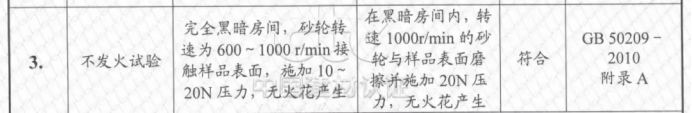 3.
不发火试验
完全黑暗房间，砂轮转
速为 600～1000 r/min 接
触样品表面，施加 10～
20N 压力，无火花产生
在黑暗房间内，转
速 1000r/min 的砂
轮与样品表面磨
擦并施加 20N 压
力，无火花产生
符合
GB 50209－
2010
附录 A